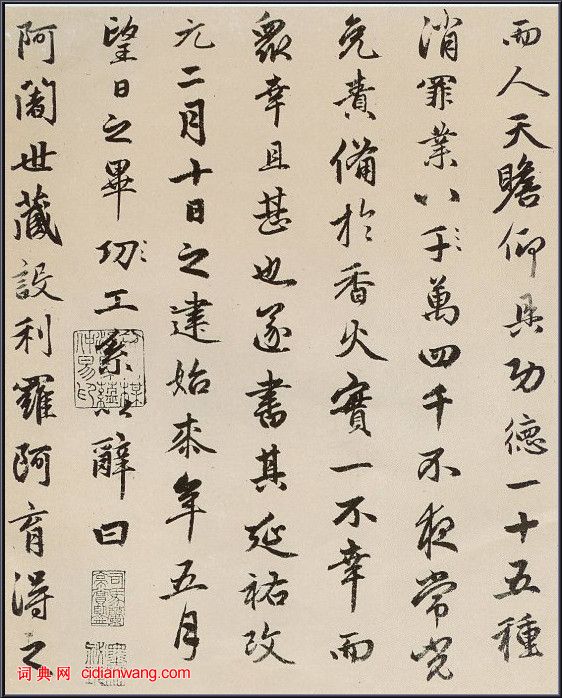 而人天瞻仰具功德一十五種
消罪業八千萬四千不夜常光
免費備於香火實一不幸而
衆幸且甚也遂書其延祐改
元二月十日之建始來年五月
望日之畢功工系以辭曰
阿闍世藏設利羅阿育得之
词典网 cidianwang.com